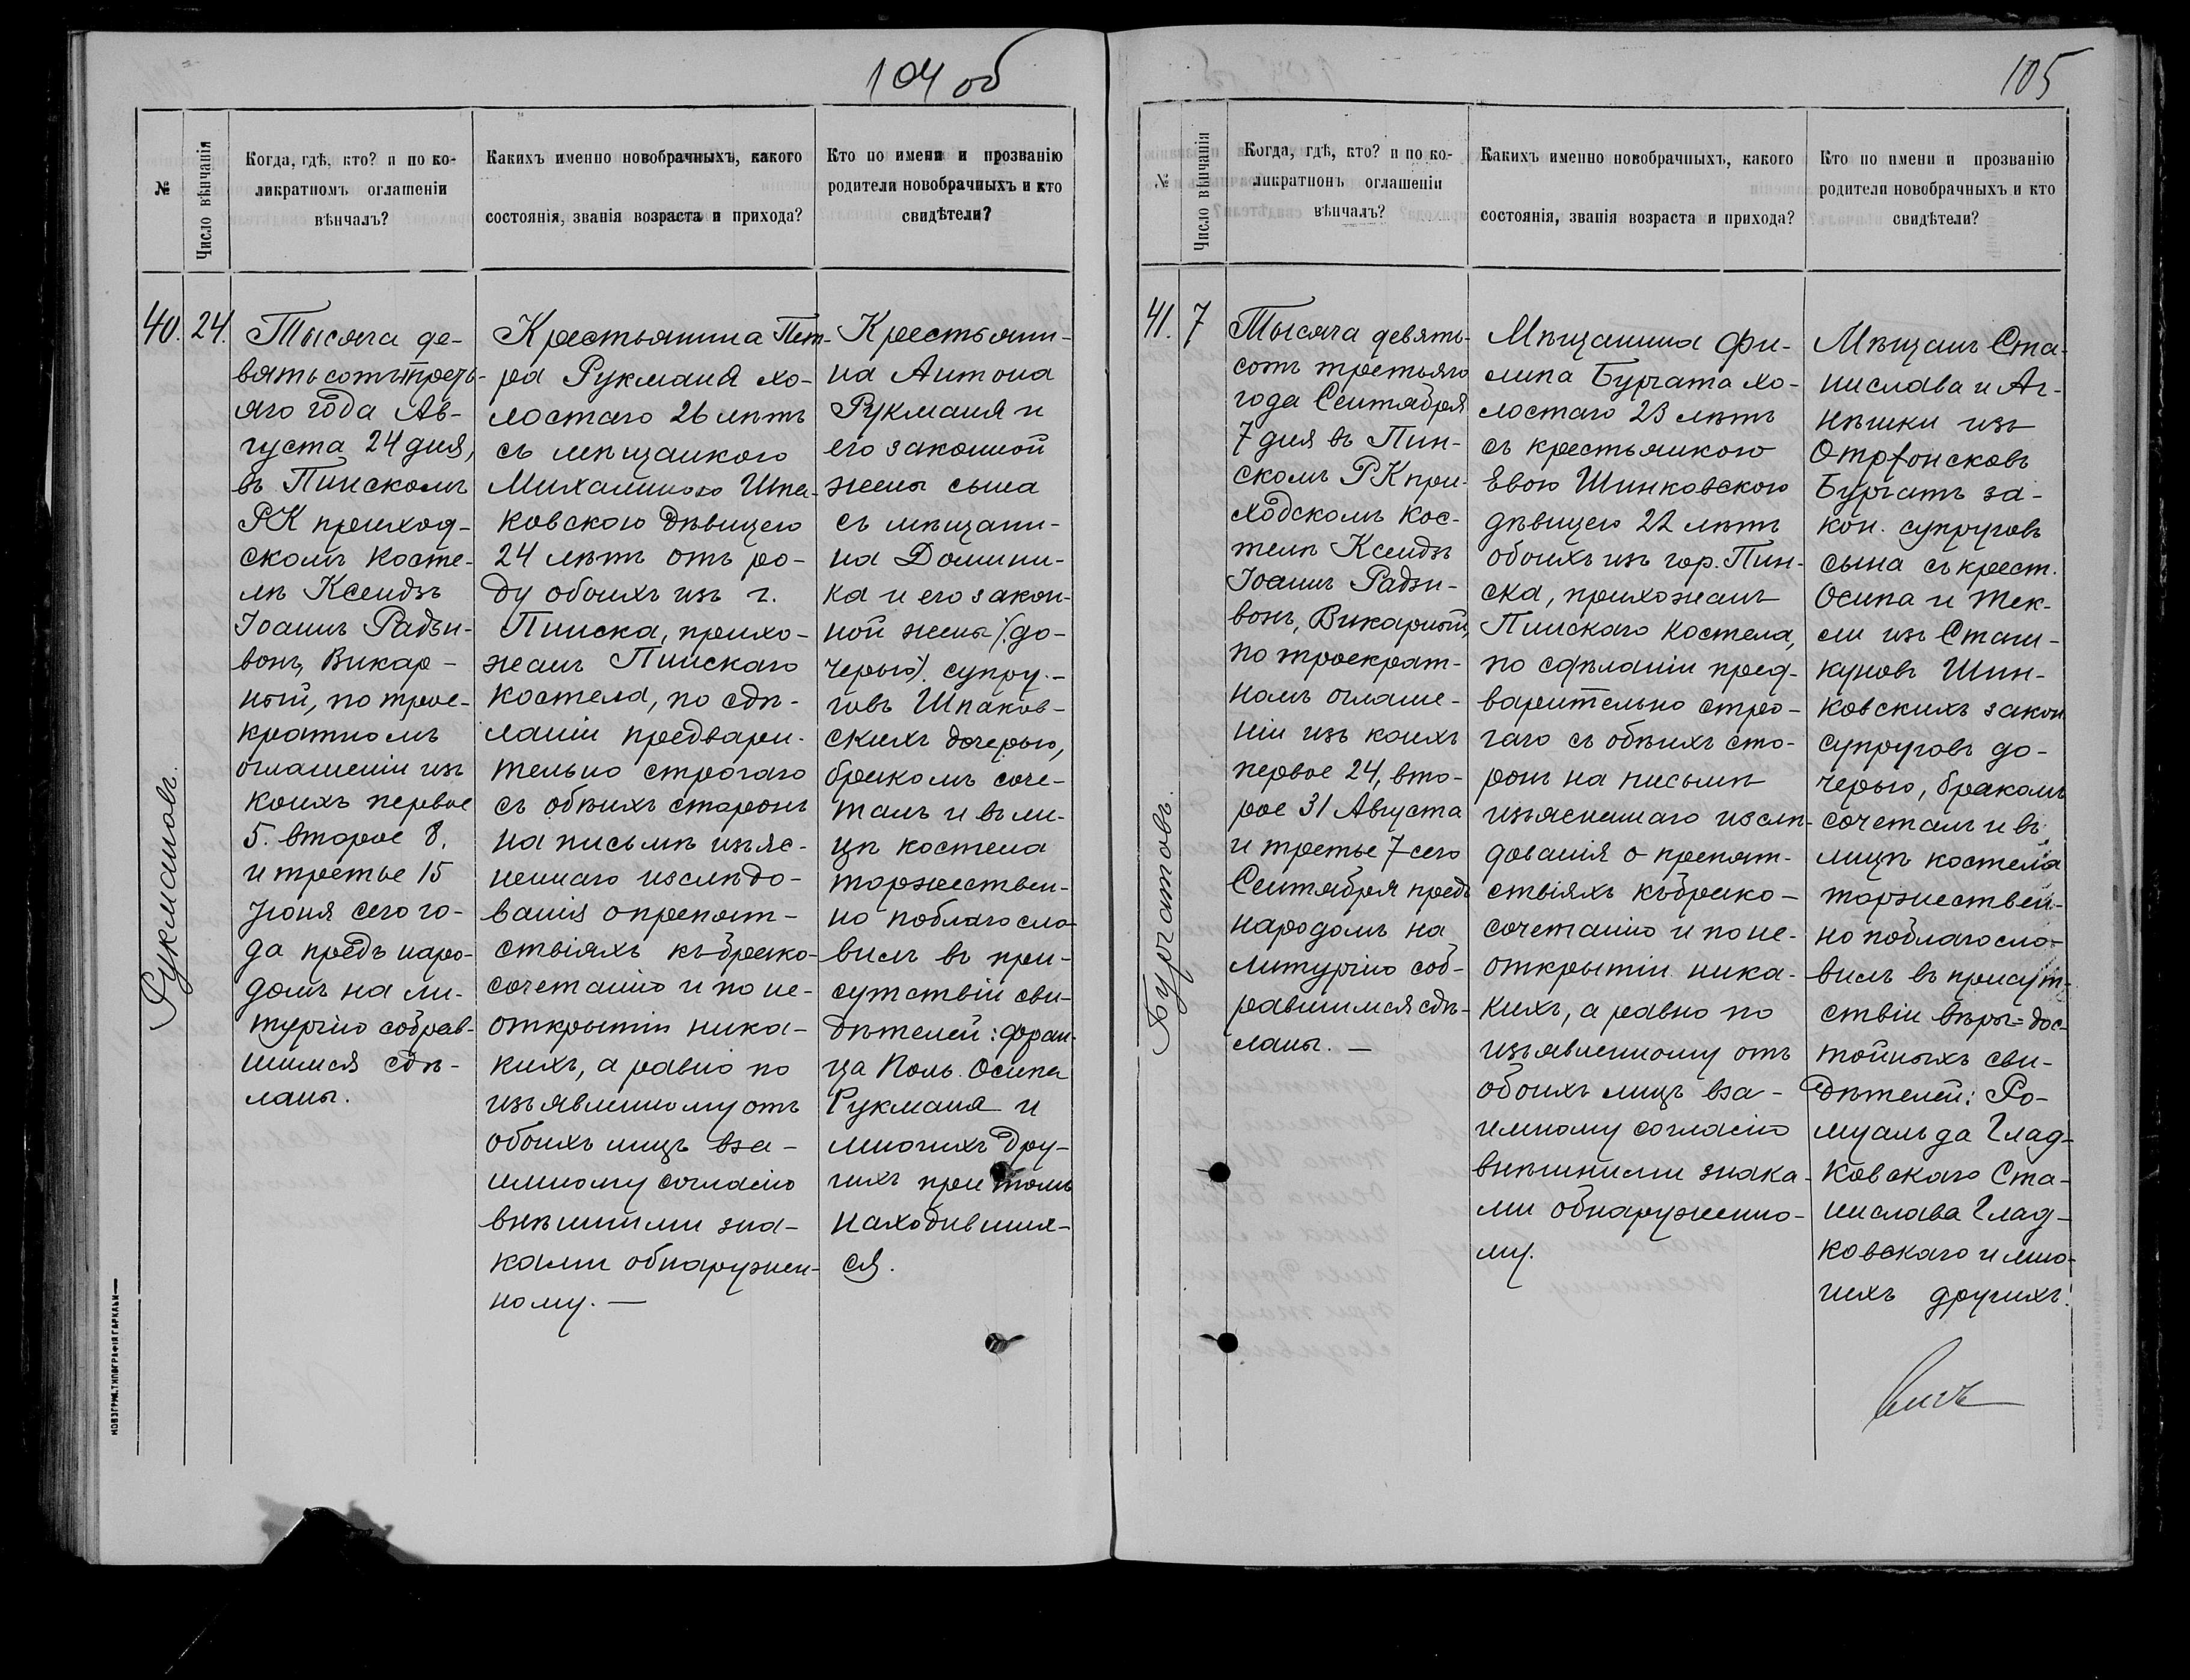 104 об
№
Число вѣнчанія
Когда, гдѣ, кто? и по ко-
ликратномъ оглашеніи
вѣнчалъ?
Какихъ именно новобрачныхъ, какого
состоянія, званія возраста и прихода?
Кто по имени и прозванію
родители новобрачныхъ и кто
свидѣтели?
40.
24.
Рукмановъ.
Тысяча де-
вять сотъ треть-
яго года Ав-
густа 24 дня,
въ Пинскомъ
РК приход-
скомъ Косте-
лѣ Ксендзъ
Іоаннъ Радзи-
вонъ, Викар-
ный, по трое-
кратномъ
оглашеніи изъ
коихъ первое
5. второе 8.
и третье 15
Іюня сего го-
да предъ наро-
домъ на ли-
тургію собрав-
шимся сдѣ-
ланы.
Крестьянина Пет-
ра Рукманя хо-
лостаго 26 лѣтъ
съ мѣщанкою
Михалиною Шпа-
ковскою дѣвицею
24 лѣтъ отъ ро-
ду обоихъ изъ г.
Пинска, прихо-
жанъ Пинскаго
костела, по сдѣ-
ланіи предвари-
тельно строгаго
съ обѣихъ сторонъ
на письмѣ изъяс-
неннаго изслѣдо-
ванія о препят-
ствіяхъ къ брако-
сочетанію и по не-
открытіи ника-
кихъ, а равно по
изъявленному отъ
обоихъ лицъ вза-
имному согласію
внѣшними зна-
ками обнаружен-
ному. —
Крестьяни-
на Антона
Рукманя и
его законной
жены сына
съ мѣщани-
на Домини-
ка и его закон-
ной жены (до-
черью). супру-
говъ Шпаков-
скихъ дочерью,
бракомъ соче-
талъ и въ ли-
цѣ костела
торжествен-
но поблагосло-
вилъ въ при-
сутствіи сви-
дѣтелей: Фран-
ца Поль. Осипа
Рукманя и
многихъ дру-
гихъ при томъ
находивших-
ся.
НОВЗГРИБ. ТИПОГРАФІЯ ГАРКАВИ
105
№
Число вѣнчанія
Когда, гдѣ, кто? и по ко-
ликратномъ оглашеніи
вѣнчалъ?
Какихъ именно новобрачныхъ, какого
состоянія, званія возраста и прихода?
Кто по имени и прозванію
родители новобрачныхъ и кто
свидѣтели?
41.
7
Бургатовъ.
Тысяча девять-
сотъ третьяго
года Сентября
7 дня въ Пин-
скомъ РК при-
ходскомъ Кос-
телѣ Ксендзъ
Іоаннъ Радзи-
вонъ, Викарный,
по троекрат-
номъ оглаше-
ніи изъ коихъ
первое 24, вто-
рое 31 Августа
и третье 7 сего
Сентября предъ
народомъ на
литургію соб-
равшимся сдѣ-
ланы. —
Мѣщанина Фи-
липа Бургата хо-
лостаго 23 лѣтъ
съ крестьянкою
Евою Шинковскою
дѣвицею 22 лѣтъ
обоихъ изъ гор. Пин-
ска, прихожанъ
Пинскаго костела,
по сдѣланіи пред-
варительно стро-
гаго съ обѣихъ сто-
ронъ на письмѣ
изъясненнаго изслѣ-
дованія о препят-
ствіяхъ къ брако-
сочетанію и по не-
открытіи ника-
кихъ, а равно по
изъявленному отъ
обоихъ лицъ вза-
имному согласію
внѣшними знака-
ми обнаруженно-
му.
Мѣщанъ Ста-
нислава и Аг-
нѣшки изъ
Бургатъ за-
кон. супруговъ
сына съ крест.
Осипа и Тек-
ли изъ Стани-
куновъ Шин-
ковскихъ закон
супруговъ до-
черью, бракомъ
сочеталъ и въ
лицѣ костела
торжествен-
но поблагосло-
вилъ въ присут-
ствіи вѣры-дос-
тойныхъ сви-
дѣтелей: Ро-
муальда Глад-
ковскаго Ста-
нислава Глад-
ковскаго и мно-
гихъ другихъ.